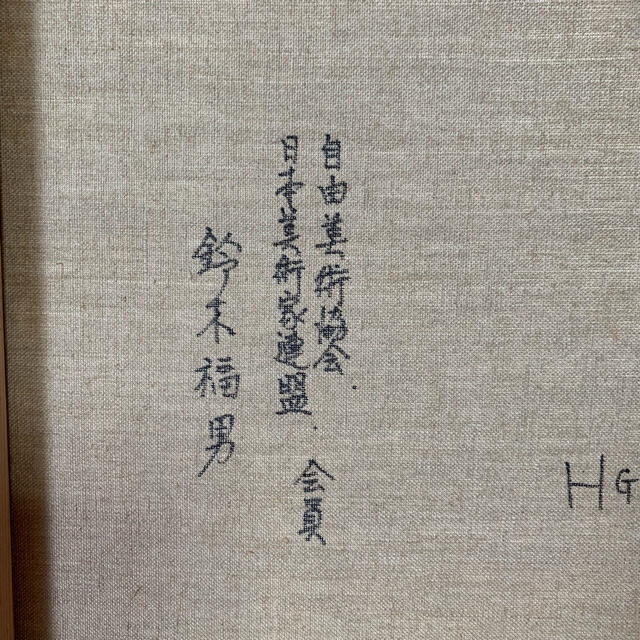 自由美術協会.
日本美術家連盟.
会員
鈴木福男
HG